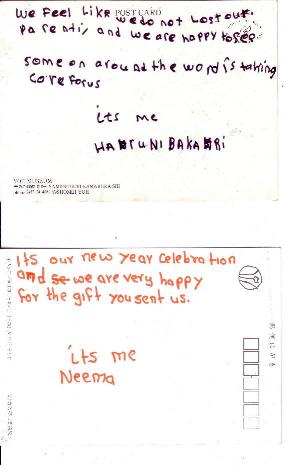 We Feel Like we do not Lost out.
POST CARD
Parents, and we are happy to see
some on around the word is taking
core forus
its me
HARUNI BAKARI
Its our new year celebration
and se we are very happy
for the gift you sent us.
its me
Neema